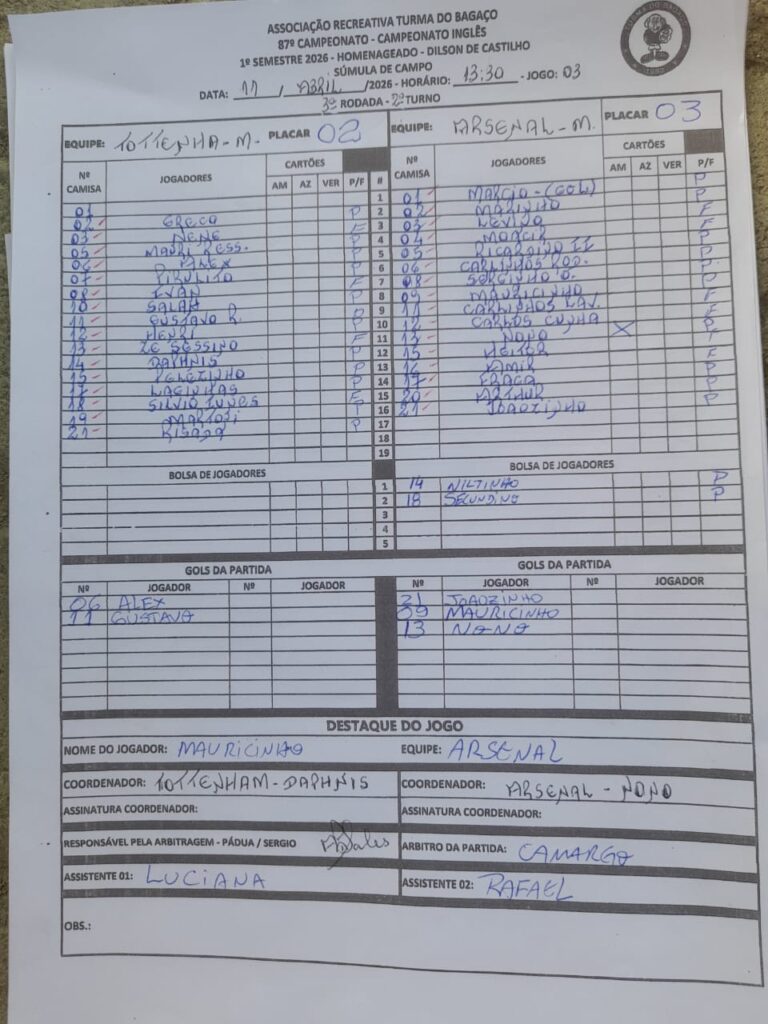 ASSOCIAÇÃO RECREATIVA TURMA DO BAGAÇO
87º CAMPEONATO - CAMPEONATO INGLÊS
1º SEMESTRE 2026 - HOMENAGEADO - DILSON DE CASTILHO
SÚMULA DE CAMPO
DATA: 11 / ABRIL /2026 - HORÁRIO: 13:30 - JOGO: 03
3ª RODADA - 2º TURNO
EQUIPE: TOTTENHA-M. PLACAR 02 EQUIPE: ARSENAL-M. PLACAR 03
Nº CAMISA JOGADORES CARTÕES AM AZ VER P/F # Nº CAMISA JOGADORES CARTÕES AM AZ VER P/F
01 1 01 MARCIO-(GOL) P
02 GRECO P 2 02 MARINHO P
03 NENE F 3 03 F
05 MAURI RESS. P 4 04 MOACIR F
06 ALEX P 5 05 RICARDINO II P
07 PIRULITO P 6 06 CARLINHOS ROD. P
08 IVAN F 7 08 SERGINHO O. P
10 SALAH P 8 09 MAURICINHO P
11 GUSTAVO R. 9 11 CARLINHOS F
12 HENRI F 10 12 CARLOS CUNHA P
13 ZE SESSINO F 11 13 NONO X P
14 DAPHNIS P 12 15 HEITOR F
15 PELEZINHO P 13 16 P
17 LAGINHAS P 14 17 FRAGA P
18 SILVIO NUNES F 15 20 ARTHUR P
19 16 21 JOAOZINHO
21 RISADA P 17
18
19
BOLSA DE JOGADORES BOLSA DE JOGADORES
1 14 NILTINHO P
2 18 SECUNDINO P
3
4
5
GOLS DA PARTIDA GOLS DA PARTIDA
Nº JOGADOR Nº JOGADOR Nº JOGADOR Nº JOGADOR
06 ALEX 21 JOAOZINHO
11 GUSTAVO 09 MAURICINHO
13 NONO
DESTAQUE DO JOGO
NOME DO JOGADOR: MAURICINHO EQUIPE: ARSENAL
COORDENADOR: TOTTENHAM-DAPHNIS COORDENADOR: ARSENAL - NONO
ASSINATURA COORDENADOR: ASSINATURA COORDENADOR:
RESPONSÁVEL PELA ARBITRAGEM - PÁDUA / SERGIO ARBITRO DA PARTIDA: CAMARGO
ASSISTENTE 01: LUCIANA ASSISTENTE 02: RAFAEL
OBS.: